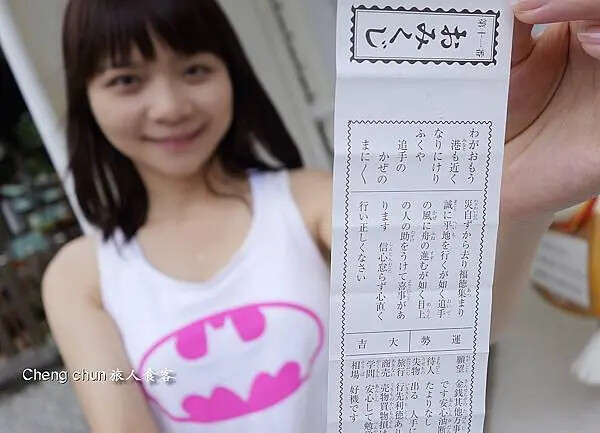 第十一番
おみくじ
わがおもう
港も近く
なりにけり
ふくや
追手の
かぜの
まに〱
災自ずから去り福徳集まり
誠に平地を行くが如く追手
の風に舟の進むが如く目上
の人の助をうけて喜事があ
ります 信心怠らず心直く
行い正しくなさい
運勢 大吉
願望 金銭其他万事
です安心油断
待人 たよりなし
失物 出る 人手に
旅行 行先利徳あり
商売 売物買物損
学問 安心して勉
相場 好機です
Cheng chun 旅人食客